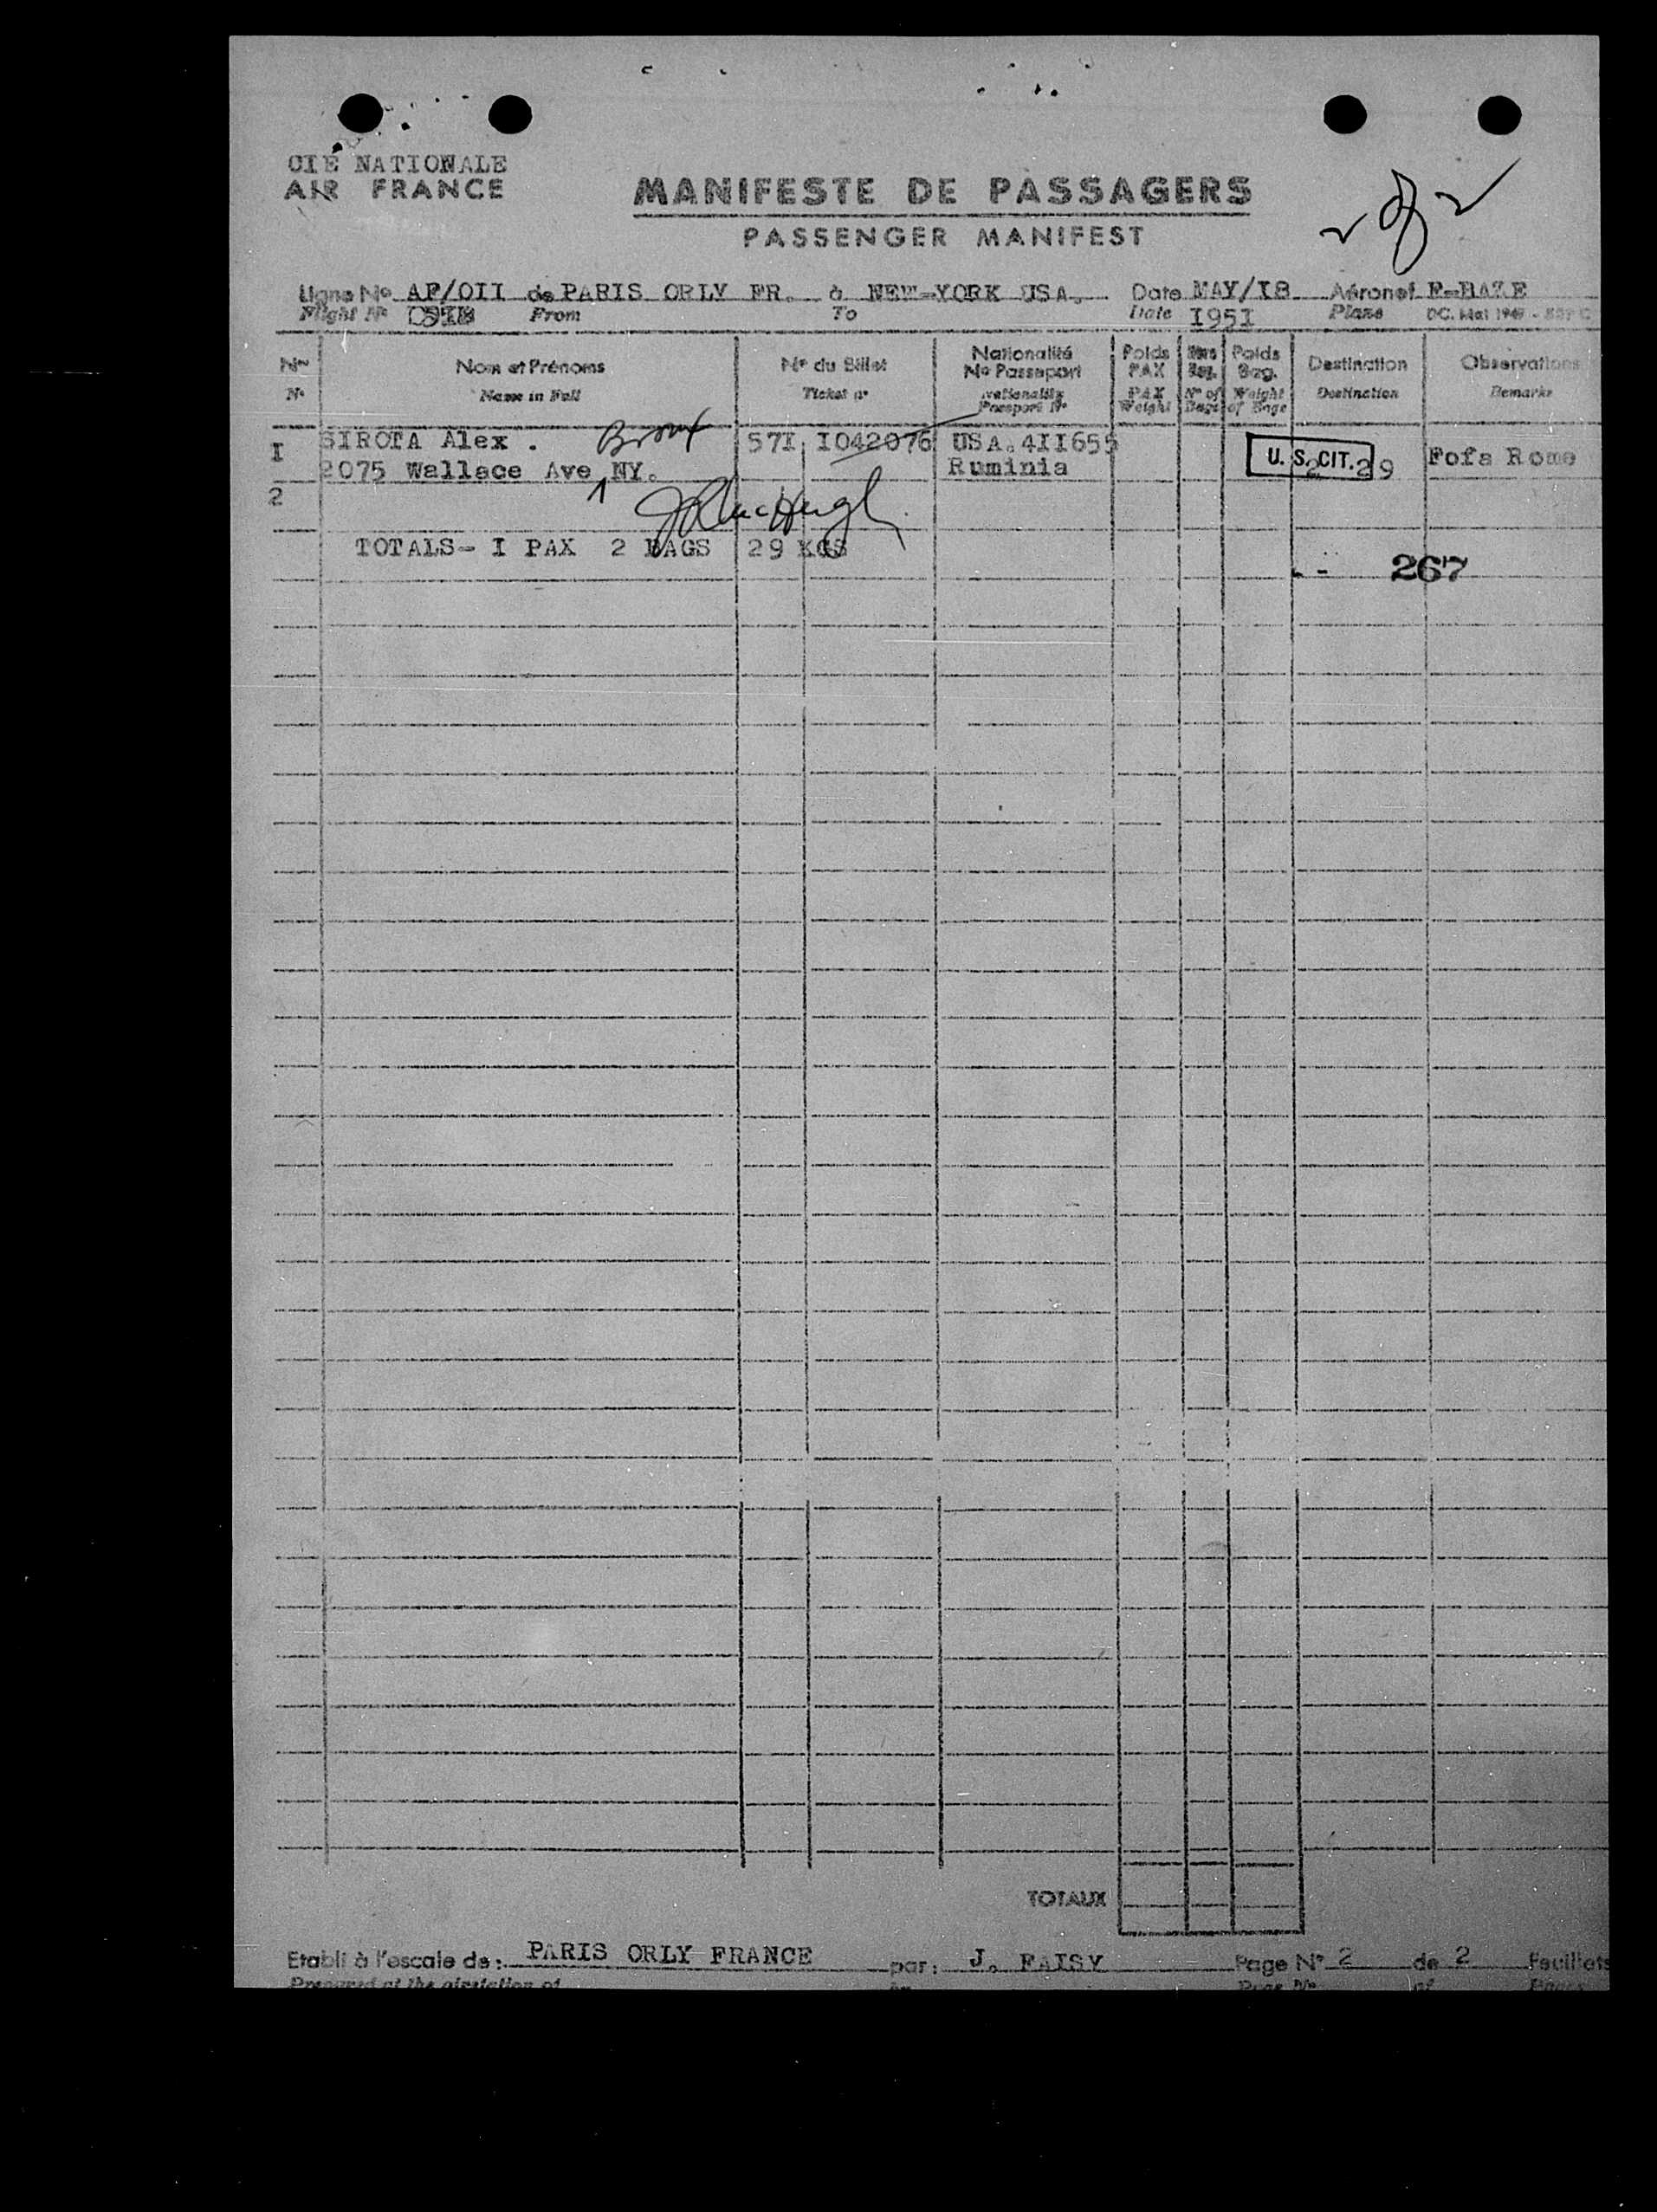 CIE NATIONALE
AIR FRANCE
MANIFESTE DE PASSAGERS
PASSENGER MANIFEST
2 of 2
Ligne No AF/OII de PARIS ORLY FR. à NEW-YORK USA. Date MAY/I8 Aéronef
Flight No From To Date I95I Plane
Nos Nom et Prénoms No du Billet Nationalité No Passeport Poids PAX Nbre Bag. Poids Bag. Destination Observations
No Name in Full Ticket no Nationality Passport No PAX Weight No of Bags Weight of Bags Destination Remarks
I SIROTA Alex . Bronx 57I I042076 USA.4II655 U. S. CIT. 2 29 Fofa Rome
2075 Wallace Ave NY. Ruminia
2
TOTALS- I PAX 2 BAGS 29 KGS
267
TOTAUX
Etabli à l'escale de: PARIS ORLY FRANCE par: J. FAISY Page No 2 de 2 Feuillets
Prepared at the airstation of